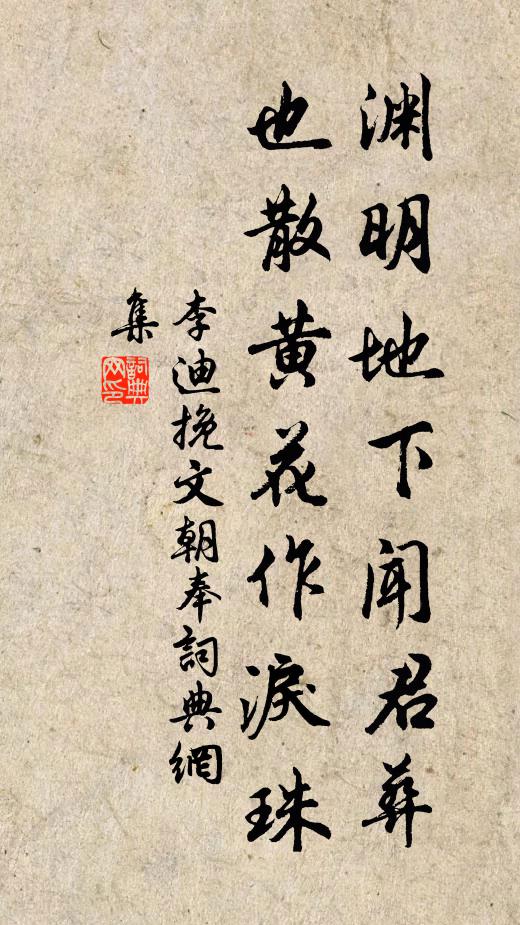 渊明地下闻君葬
也散黄花作淚珠
李迪挽文朝奉詞典網
集
詞典網印